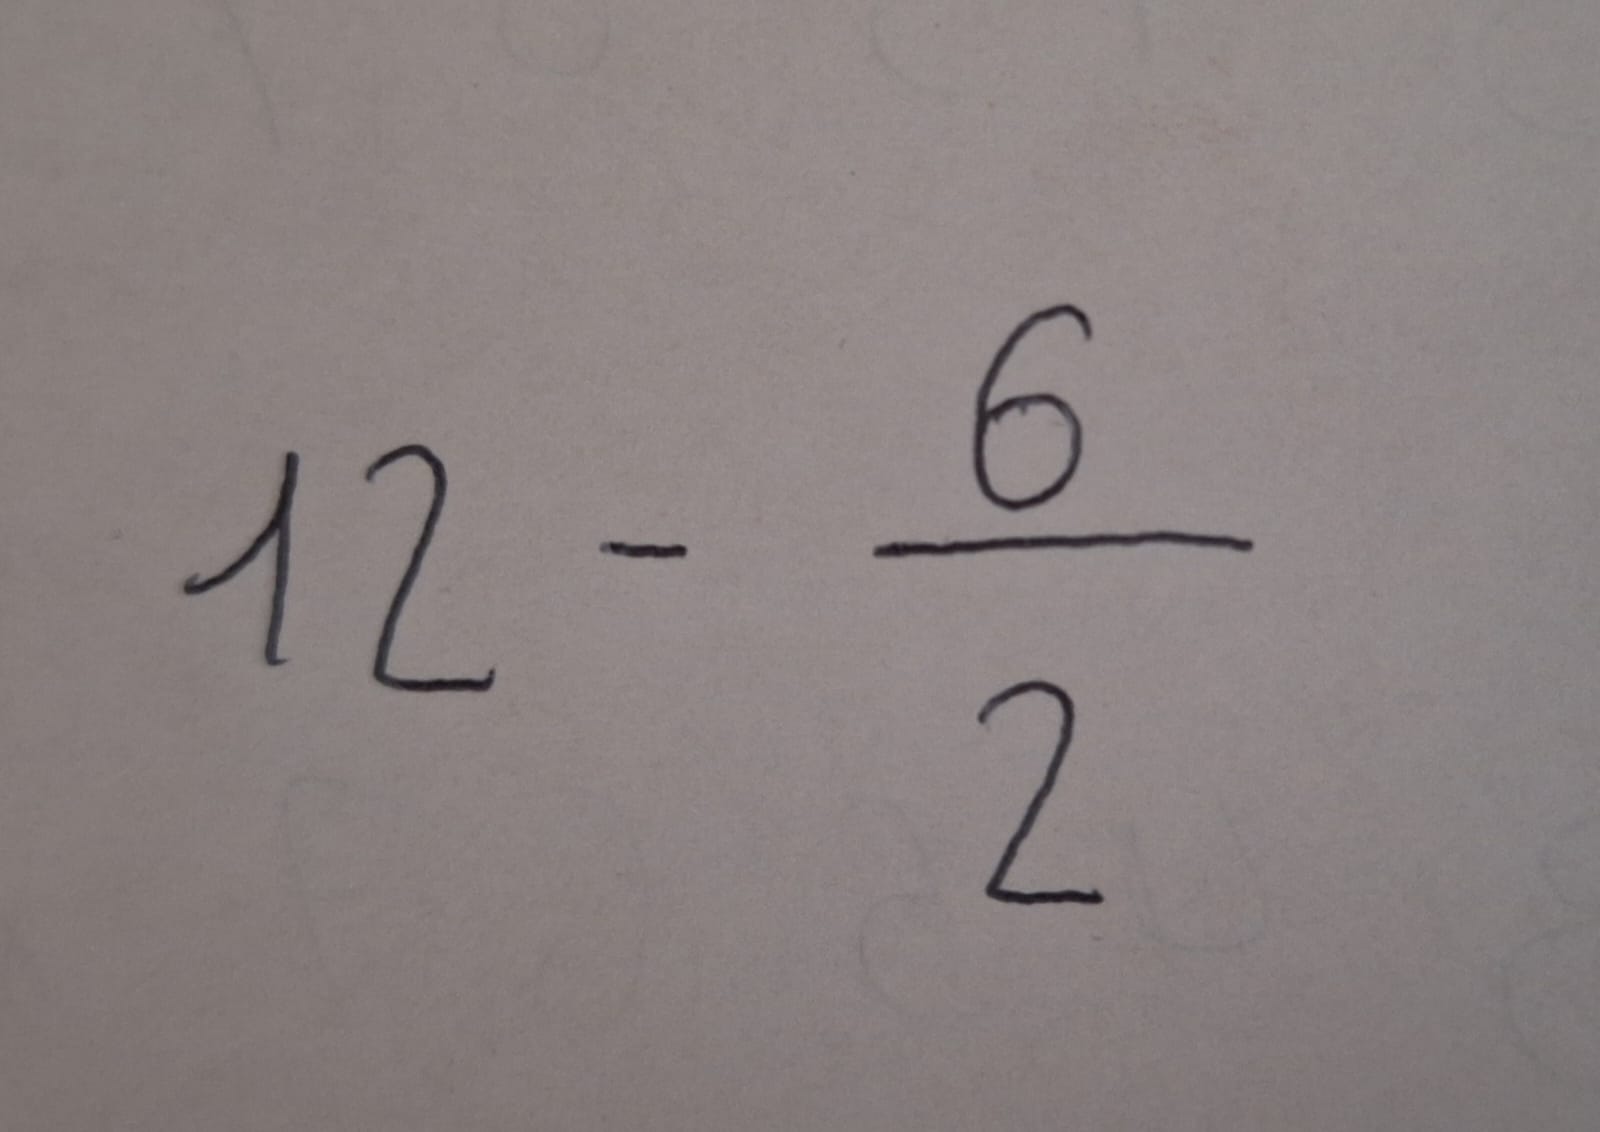 12 - 6/2